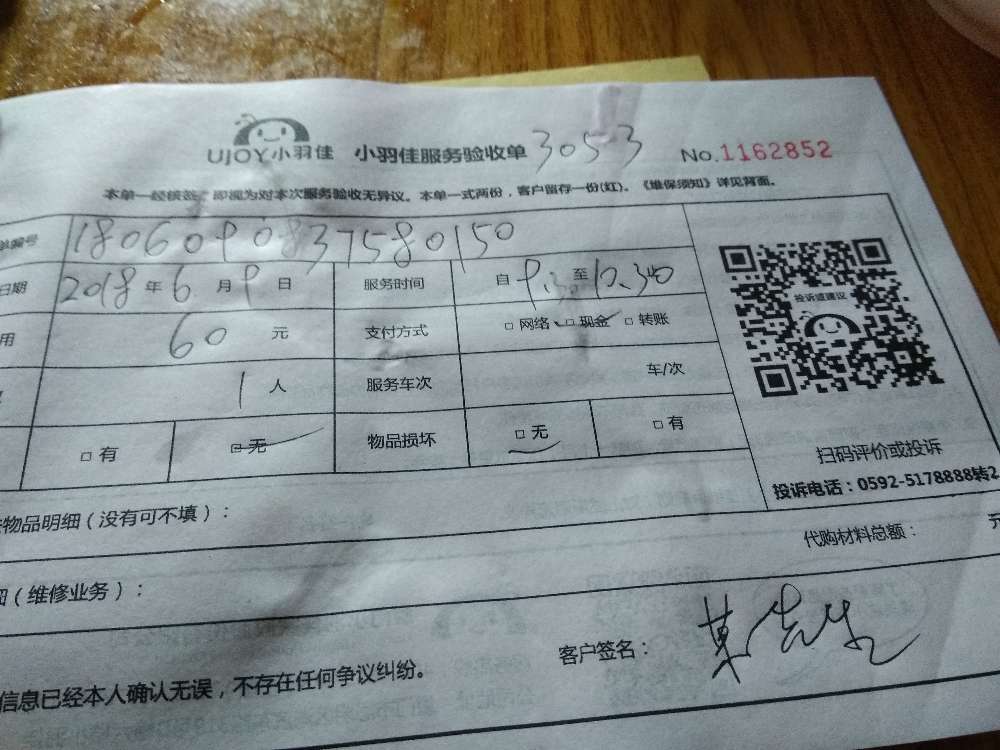 UJOY小羽佳 小羽佳服务验收单 3053 No.1162852
本单一经核签，即视为对本次服务验收无异议。本单一式两份，客户留存一份(红)。《维保须知》详见背面。
单编号 1806090837580150
日期 2018年6月9日 服务时间 自9.30至10.30
用 60元 支付方式 □网络 □现金 □转账
1人 服务车次 车/次
□有 □无 物品损坏 □无 □有
投诉或建议
扫码评价或投诉
投诉电话：0592-5178888转2
物品明细（没有可不填）：
代购材料总额： 元
细（维修业务）：
客户签名： 先生
信息已经本人确认无误，不存在任何争议纠纷。